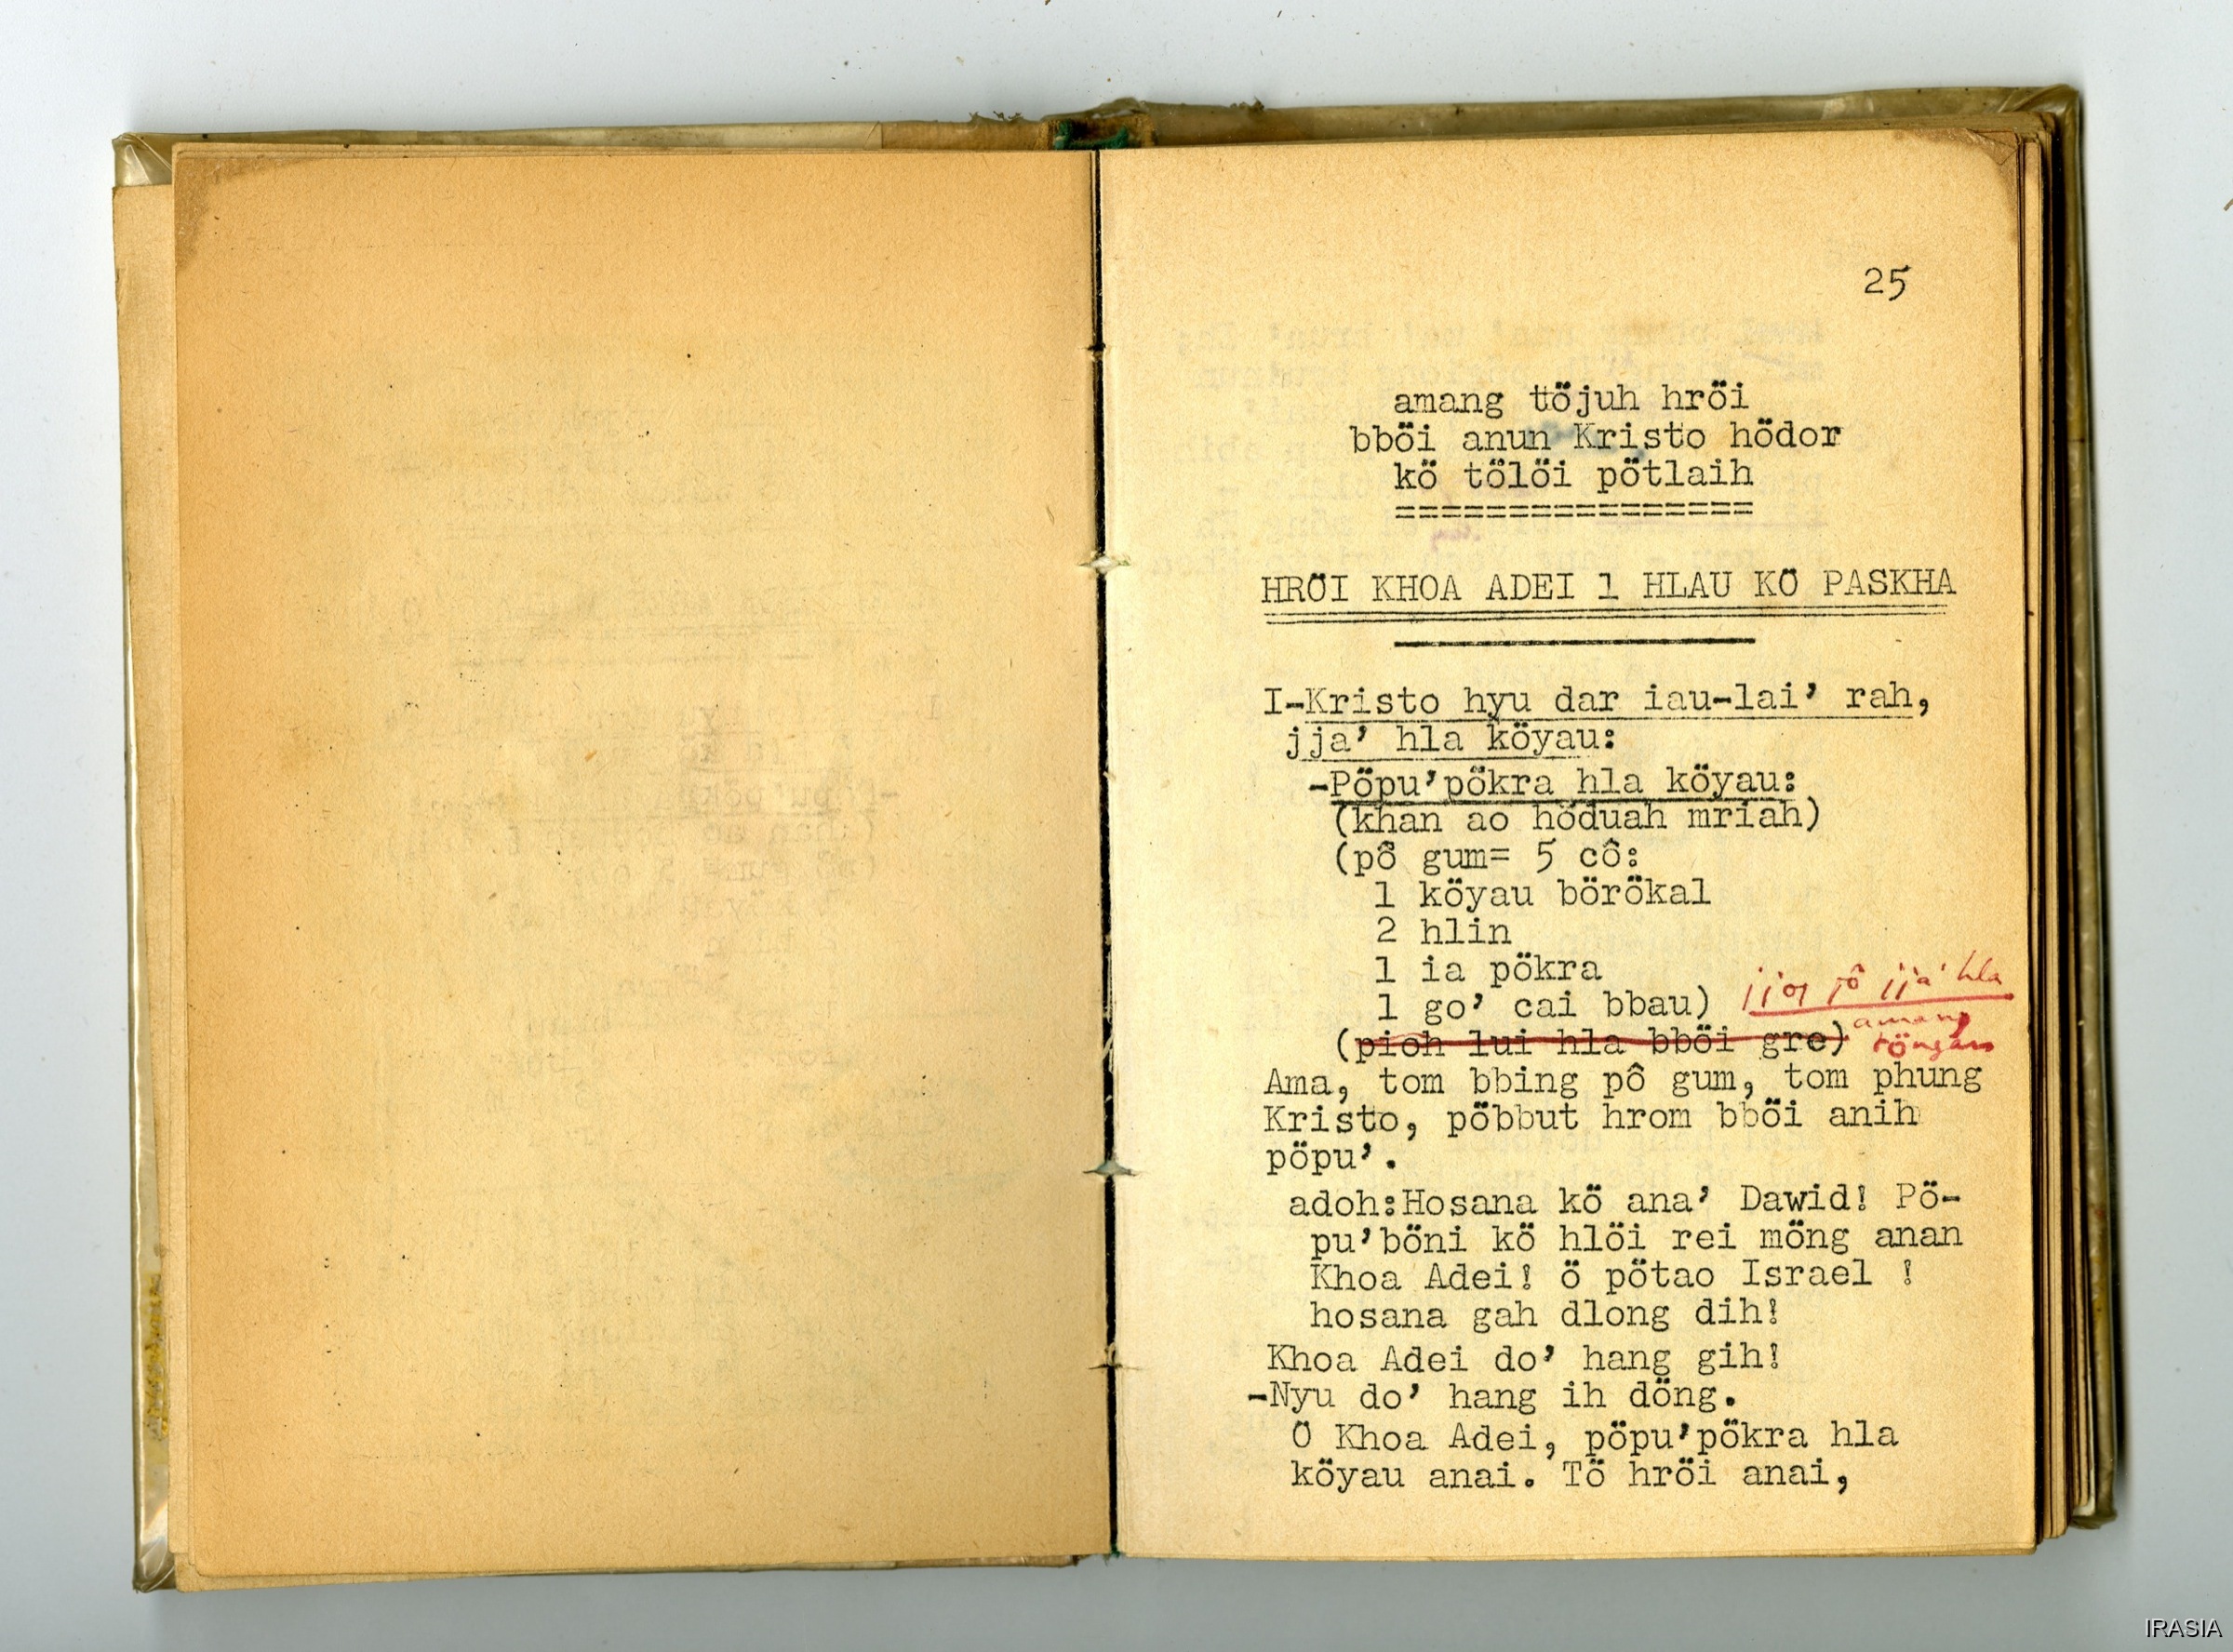 25
amang ttöjuh hröi
bböi anun Kristo hödor
kö tölöi pötlaih
================
HRÖI KHOA ADEI 1 HLAU KÖ PASKHA
I-Kristo hyu dar iau-lai' rah,
jja' hla köyau:
-Pöpu'pökra hla köyau:
(khan ao höduah mriah)
(pô gum= 5 cô:
1 köyau börökal
2 hlin
1 ia pökra
1 go' cai bbau)
jja' hla
amang
(pioh lui hla bböi gre)
töngan
Ama, tom bbing pô gum, tom phung
Kristo, pöbbut hrom bböi anih
pöpu'.
adoh:Hosana kö ana' Dawid! Pö-
pu'böni kö hlöi rei möng anan
Khoa Adei! ö pötao Israel !
hosana gah dlong dih!
Khoa Adei do' hang gih!
-Nyu do' hang ih döng.
Ö Khoa Adei, pöpu'pökra hla
köyau anai. Tö hröi anai,
IRASIA